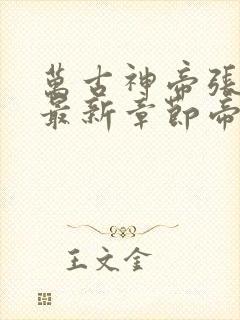 萬古神帝張
最新章節帝
王文奎